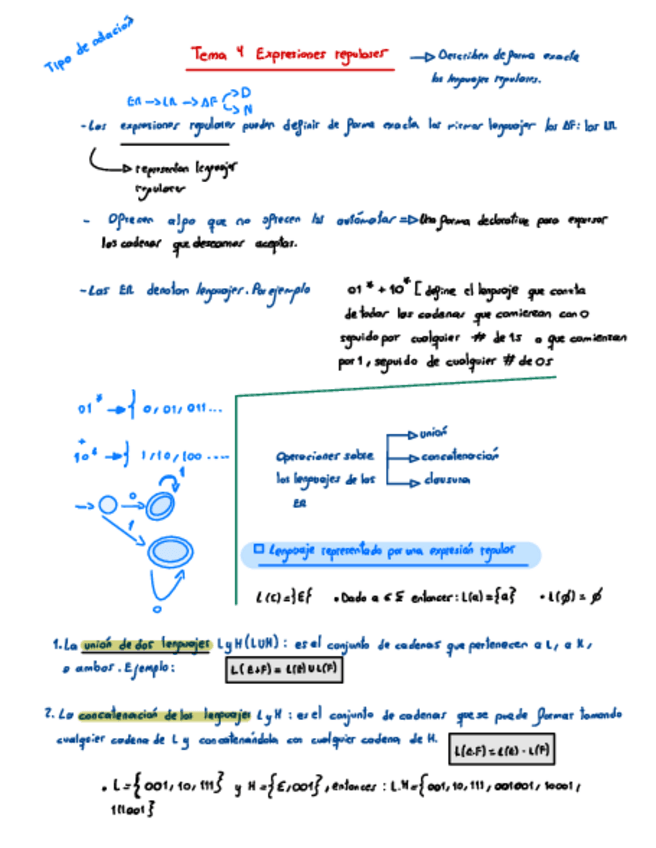 Tipo de notación
Tema 4 Expresiones regulares → Describen de forma exacta
los lenguajes regulares.
ER → LR → AF → D
→ N
- Las expresiones regulares pueden definir de forma exacta los mismos lenguajes los AF: los LR
→ representan lenguajes
regulares
- Ofrecen algo que no ofrecen los autómatas ⇒ Una forma declarativa para expresar
las cadenas que deseamos aceptar.
- Las ER denotan lenguajes. Por ejemplo 01* + 10* [ define el lenguaje que consta
de todas las cadenas que comienzan con 0
seguido por cualquier # de 1s o que comienzan
por 1, seguido de cualquier # de 0s
01* → { 0, 01, 011 ...
+
10* → } 1, 10, 100 ....
→ unión
Operaciones sobre → concatenación
los lenguajes de las → clausura
ER
0
1
1
0
Lenguaje representado por una expresión regular
L(ε)={ε} • Dado a ∈ Σ entonces: L(a)={a} • L(ø) = ø
1. La unión de dos lenguajes L y H (LUH): es el conjunto de cadenas que pertenecen a L, a H,
o ambos. Ejemplo: L(E+F) = L(E) U L(F)
2. La concatenación de los lenguajes L y H: es el conjunto de cadenas que se puede formar tomando
cualquier cadena de L y concatenándola con cualquier cadena de H. L(E.F) = L(E) · L(F)
• L={001, 10, 111} y H={ε, 001}, entonces: L.H={001, 10, 111, 001001, 10001,
111001}